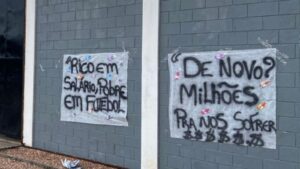 "RICO EM
SALÁRIO, POBRE
EM FUTEBOL
"DE NOVO?
MILHÕES
PRA NOS SOFRER
$ $ $ $ $